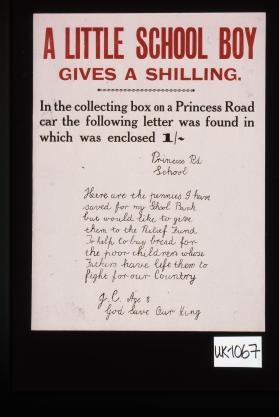 A LITTLE SCHOOL BOY
GIVES A SHILLING.
In the collecting box on a Princess Road
car the following letter was found in
which was enclosed 1/-
Princess Rd
School
Here are the pennies I have
saved for my Skool Bank
but would like to give
them to the Relief Fund
To help to buy bread for
the poor children whose
Fathers have left them to
fight for our Country
J. C. Age 8
God Save Our King
UK-1067